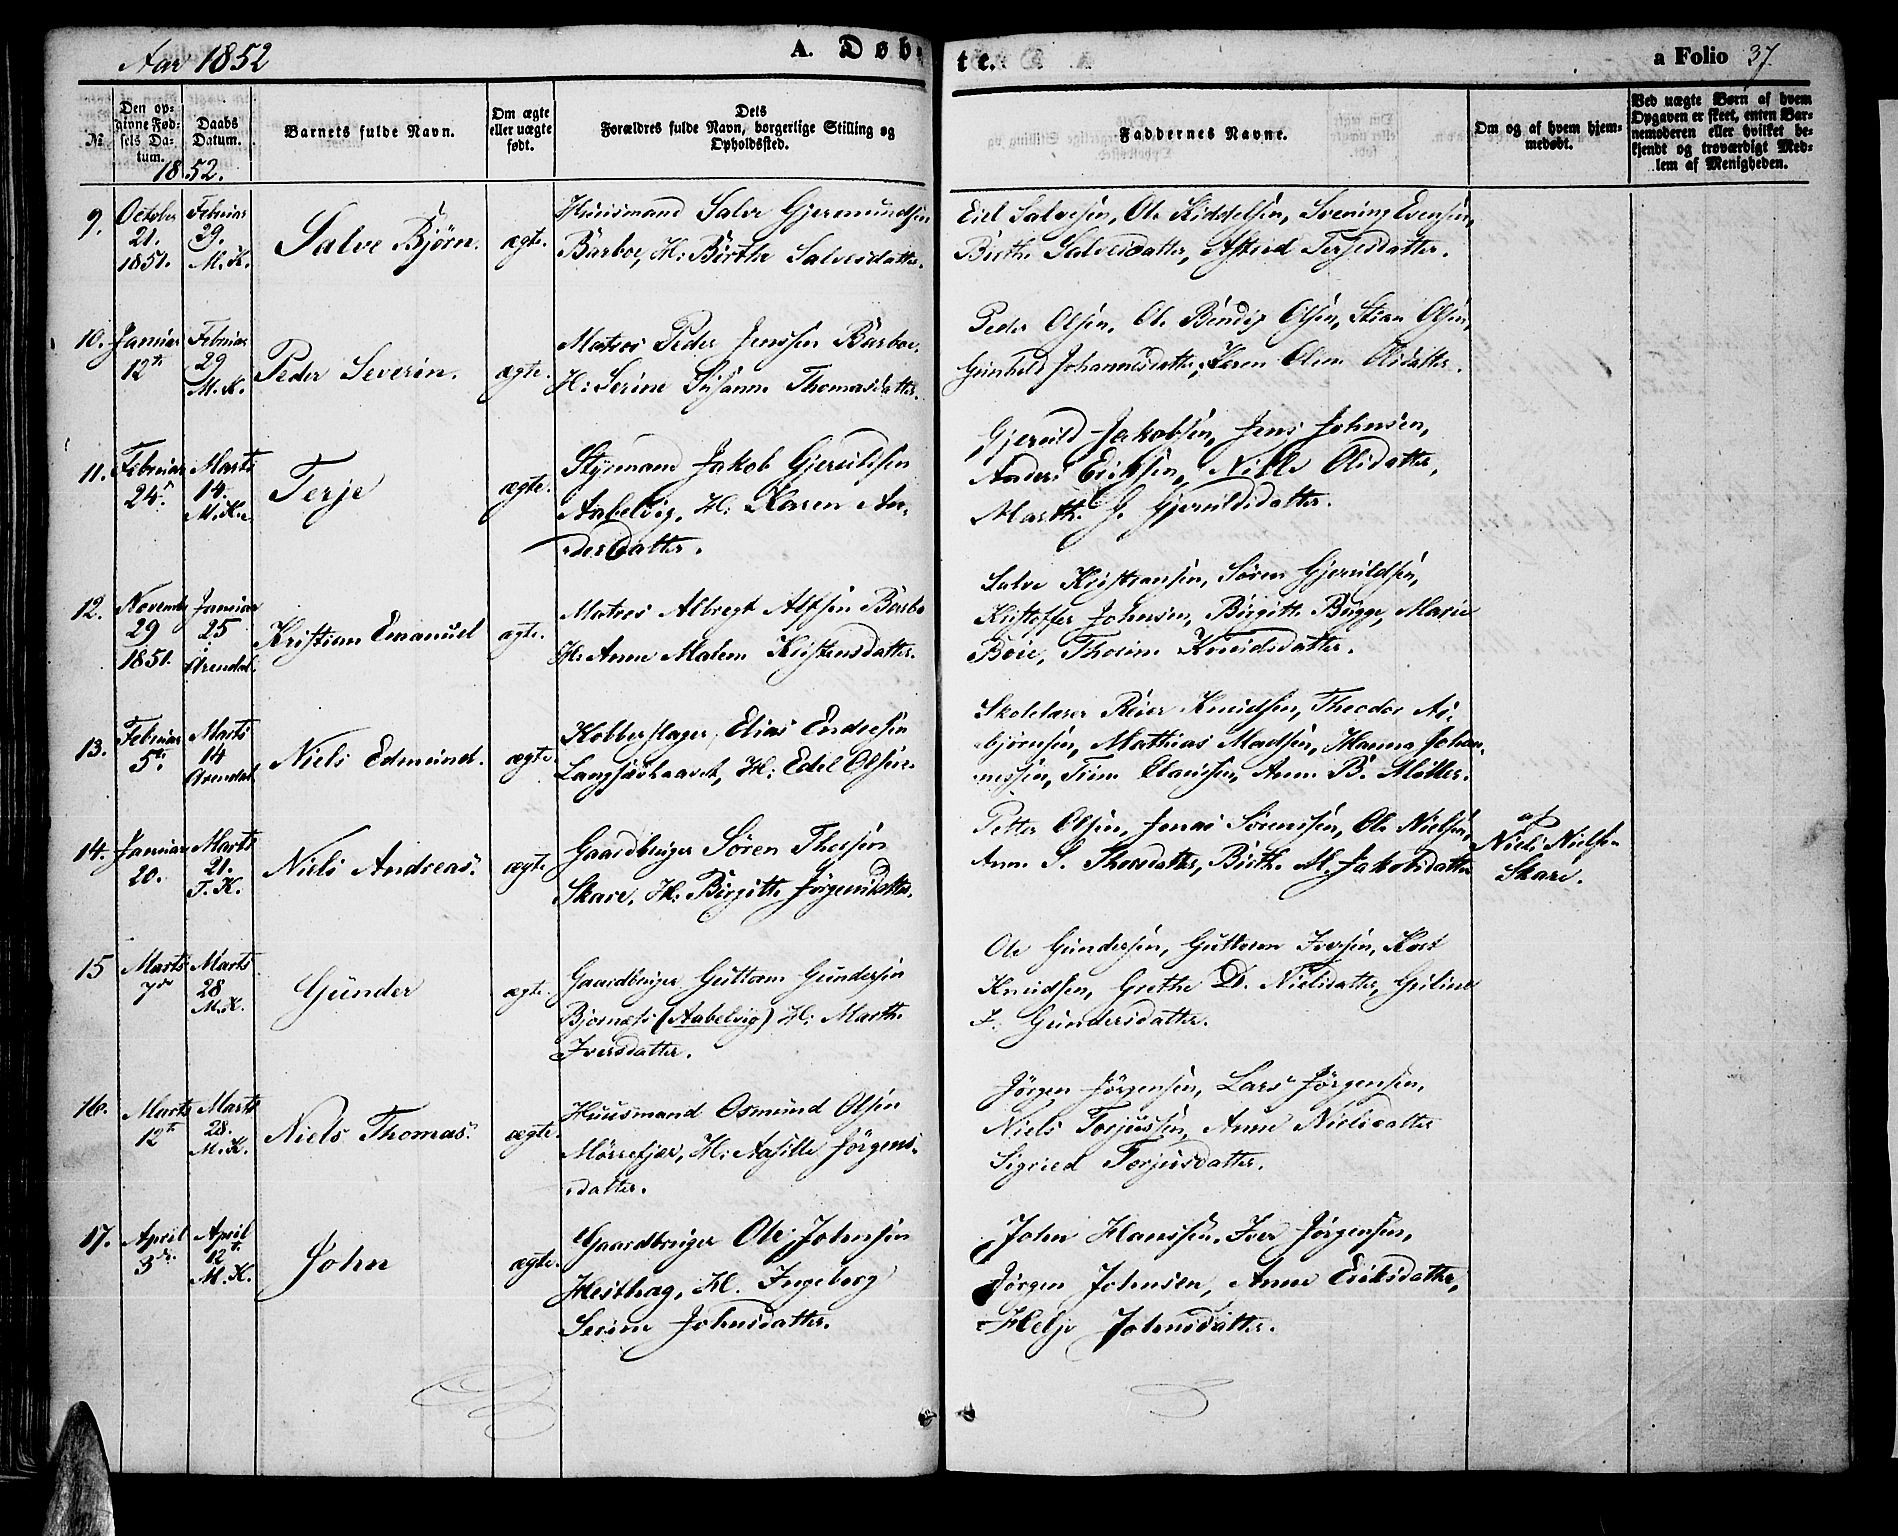 Aar 1852
A. Døb-
te.
a Folio 37.
№
Den op-
givne Fød-
sels Da-
tum.
Daabs
Datum.
1852.
Barnets fulde Navn.
Om ægte
eller uægte
født.
Dets
Forældres fulde Navn, borgerlige Stilling og
Opholdssted.
Faddernes Navne.
Om og af hvem hjem-
medøbt.
Ved uægte Børn af hvem
Opgaven er skeet, enten Bar-
nemoderen eller hvilket be-
kjendt og troværdigt Med-
lem af Menigheden.
9.
October
21.
1851.
Februar
29.
M. K.
Salve Bjørn.
ægte.
Huusmand Salve Gjermundsen
Barboe, H: Birthe Salvesdatter.
Eiel Salvesen, Ole Kiddelsen, Svening Evensen,
Birthe Salvesdatter, Astrid Terjesdatter.
10.
Januar
12te
Februar
29
M. K.
Peder Severin.
ægte.
Matros Peder Jenssen Barboe.
H: Serine Susanne Thomasdatter.
Peder Olsen, Ole Bendix Olsen, Stian Olsen,
Gunhild Johannesdatter, Karen Oline Olsdatter.
11.
Februar
24.
Marts
14.
M. K.
Terje
ægte.
Styrmand Jakob Gjeruldsen
Aabelvig, H: Karen An-
dersdatter.
Gjeruld Jakobsen, Jens Johnsen,
Anders Eriksen, Nille Olsdatter,
Marthe G. Gjeruldsdatter.
12.
Novemb
29
1851.
Januar
25
i
Arendal.
Kristian Emanuel
ægte.
Matros Albregt Alfsen Barbo
H: Anne Malene Kristensdatter.
Salve Kristiansen, Søren Gjeruldsen,
Kristoffer Johnsen, Birgithe Bugge, Marie
Boie, Thorine Knudsdatter.
13.
Februar
5te
Marts
14
Arendal.
Niels Edmund.
ægte
Kobberslager, Elias Endresen
Langsævhaavet, H: Edel Olsen.
Skolelærer Reier Knudsen, Theodor As-
bjørnsen, Mathias Madsen, Hanna Johan-
nessen, Trine Clausen, Anne B. Møller.
14.
Januar
20.
Marts
21.
T. K.
Niels Andreas.
ægte
Gaardbruger Søren Thorsen
Skare, H: Birgitte Jørgensdatter.
Petter Olsen, Jonas Sørensen, Ole Nielsen,
Anne S. Thorsdatter, Birthe M. Jakobsdatter
af
Niels Nielsen
Skare.
15
Marts
7de
Marts
28
M. K.
Gunder
ægte.
Gaardbruger Guttorm Gundersen
Bjornæs (Aabelvig) H: Marthe
Iversdatter.
Ole Gundersen, Guttorm Iversen,
Knudsen, Grethe D. Nielsdatter,
Gundersdatter.
16.
Marts
12te
Marts
28.
M. K.
Niels Thomas.
ægte.
Huusmand Osmund Olsen
Mørrefjær, H: Aasille Jørgens-
datter.
Jørgen Jørgensen, Lars Jørgensen,
Niels Torjussen, Anne Nielsdatter
Sigried Torjusdatter.
17.
April
3die
April
12te
M. K.
John
ægte.
Gaardbruger Ole Johnsen
Heithag, H. Ingeborg
Serine Johnsdatter.
John Hanssen, Iver Jørgensen,
Jørgen Johnsen, Anne Eriksdatter,
Helje Johnsdatter.